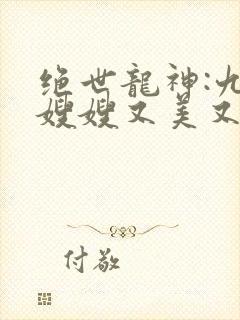 绝世龍神:九
嫂嫂又美又
付敬